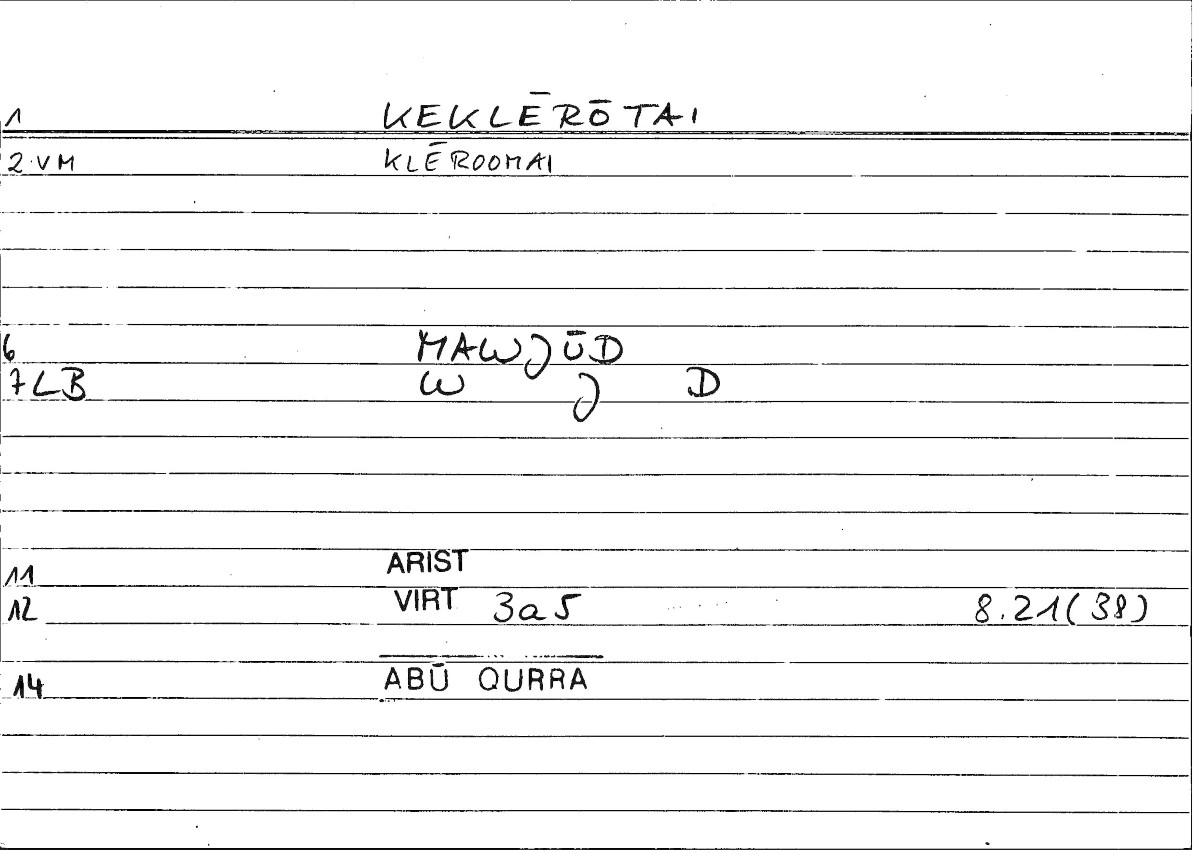 1 KEKLĒRŌTAI
2 VM KLĒROOMAI
6 MAWJŪD
7 LB W J D
11 ARIST
12 VIRT 3a5 8.21(38)
14 ABŪ QURRA